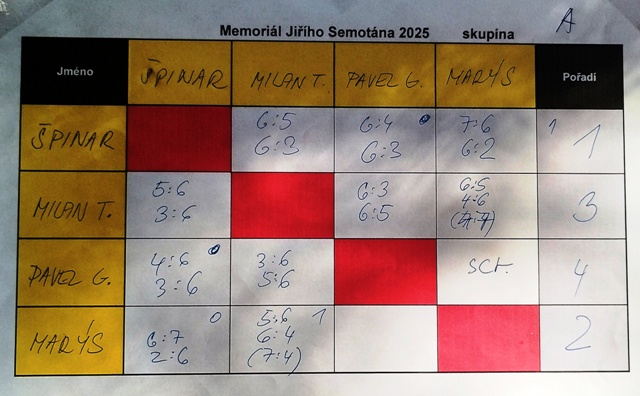 Memoriál Jiřího Semotána 2025 skupina A
Jméno ŠPINAR MILAN T. PAVEL G. MARYŠ Pořadí
ŠPINAR 6:5 6:4 0 7:6 1 1
6:3 6:3 6:2
MILAN T. 5:6 6:3 6:5 3
3:6 6:5 4:6
PAVEL G. 4:6 0 3:6 SCR. 4
3:6 5:6
MARYŠ 0 5:6 1 2
6:7 6:4
2:6 (7:4)